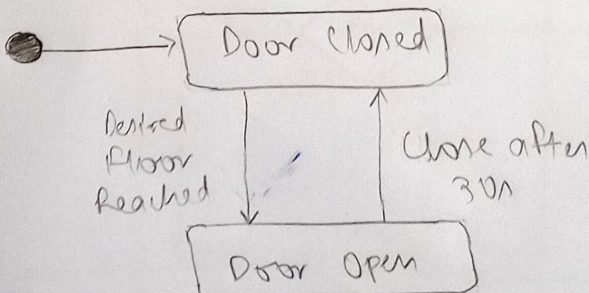 Door Closed
Desired
Floor
Reached
Close after
30s
Door Open